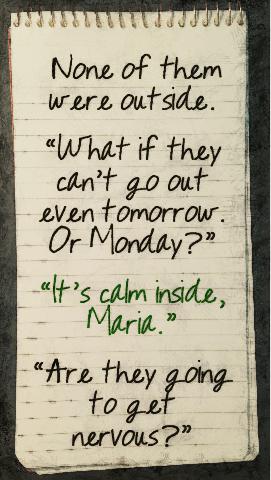 None of them
were outside.
“What if they
can't go out
even tomorrow.
Or Monday?”
“It's calm inside,
Maria.”
“Are they going
to get
nervous?”